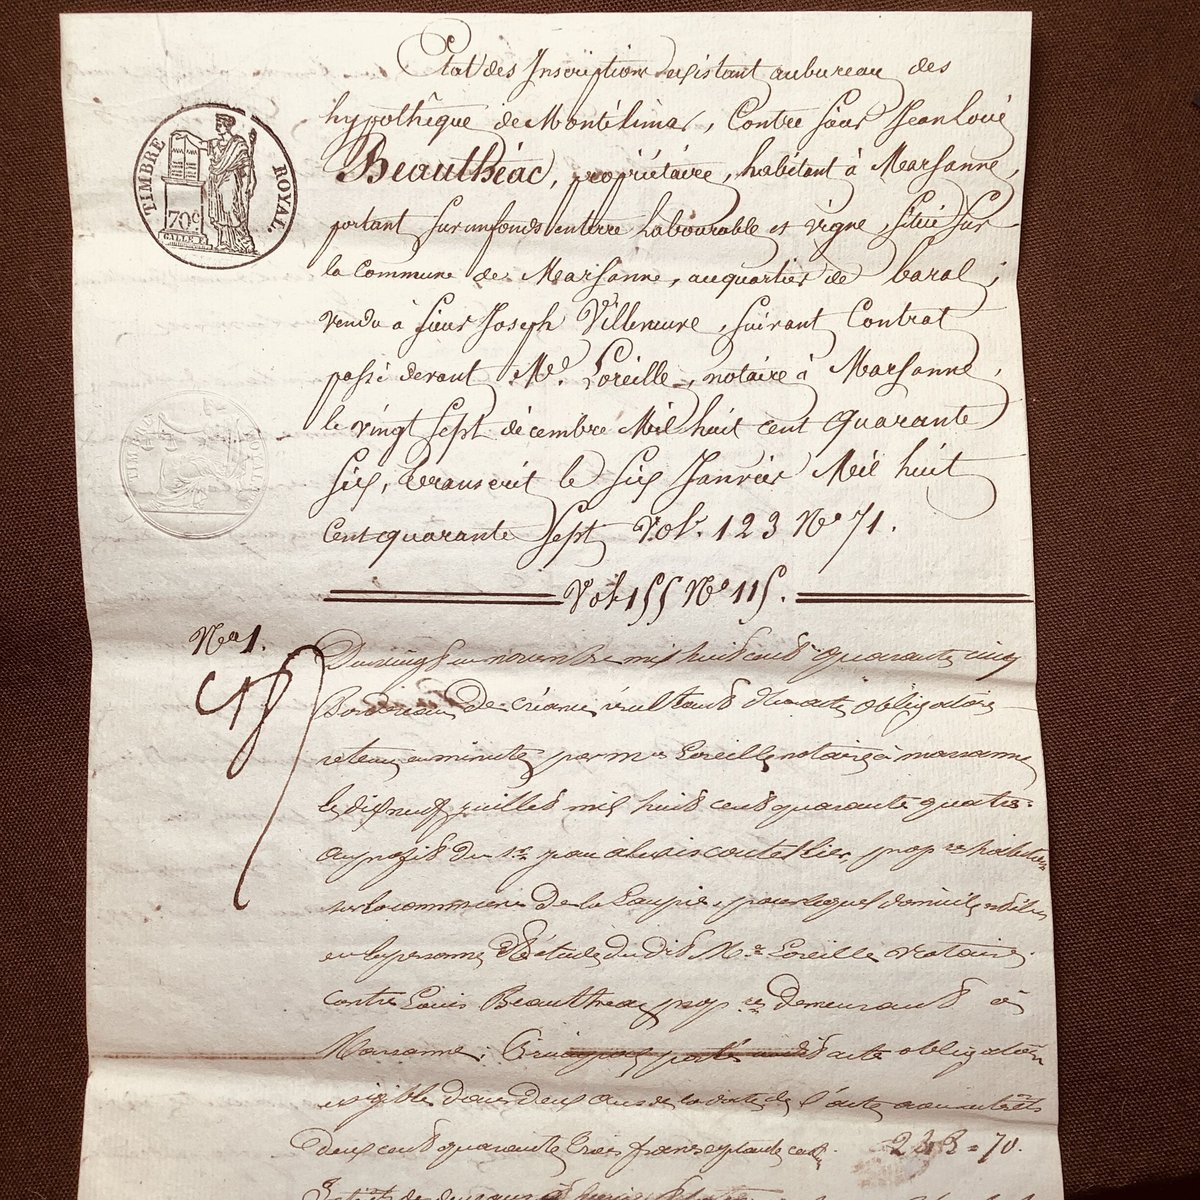 Etat des Inscriptions existant au bureau des
hypothêque de Montélimar, Contre sieur Jean Louis
Beauthéac, propriétaire, habitant à Marsanne,
portant sur un fonds en terre labourable et vigne, situé sur
la Commune de Marsanne, au quartier de baral;
vendu à sieur Joseph Villeneuve, suivant Contrat
passé devant Me. Loreille, notaire à Marsanne,
le vingt sept décembre Mil huit cent quarante
six, transcrit le six Janvier Mil huit
Cent quarante Sept Vol. 123 No 71.
Vol. 155 No 115.
No 1.
Du vingt un novembre mil huit cent quarante cinq
Bordereau de créance résultant d'un acte obligatoire
retenu en minute par me Loreille notaire à marsanne
le dix neuf juillet mil huit cent quarante quatre
au profit du sr jean alexis coutellier, propre habitant
sur la commune de la Laupie, pour lequel domicile est élu
en la personne et l'étude du dit Me Loreille notaire
contre Louis Beauthéac propre demeurant à
Marsanne; acte obligatoire
exigible dans deux ans de la date de l'acte
deux cent quarante trois francs septante cent. 243=70.
TIMBRE ROYAL.
70c
TIMBRE ROYAL